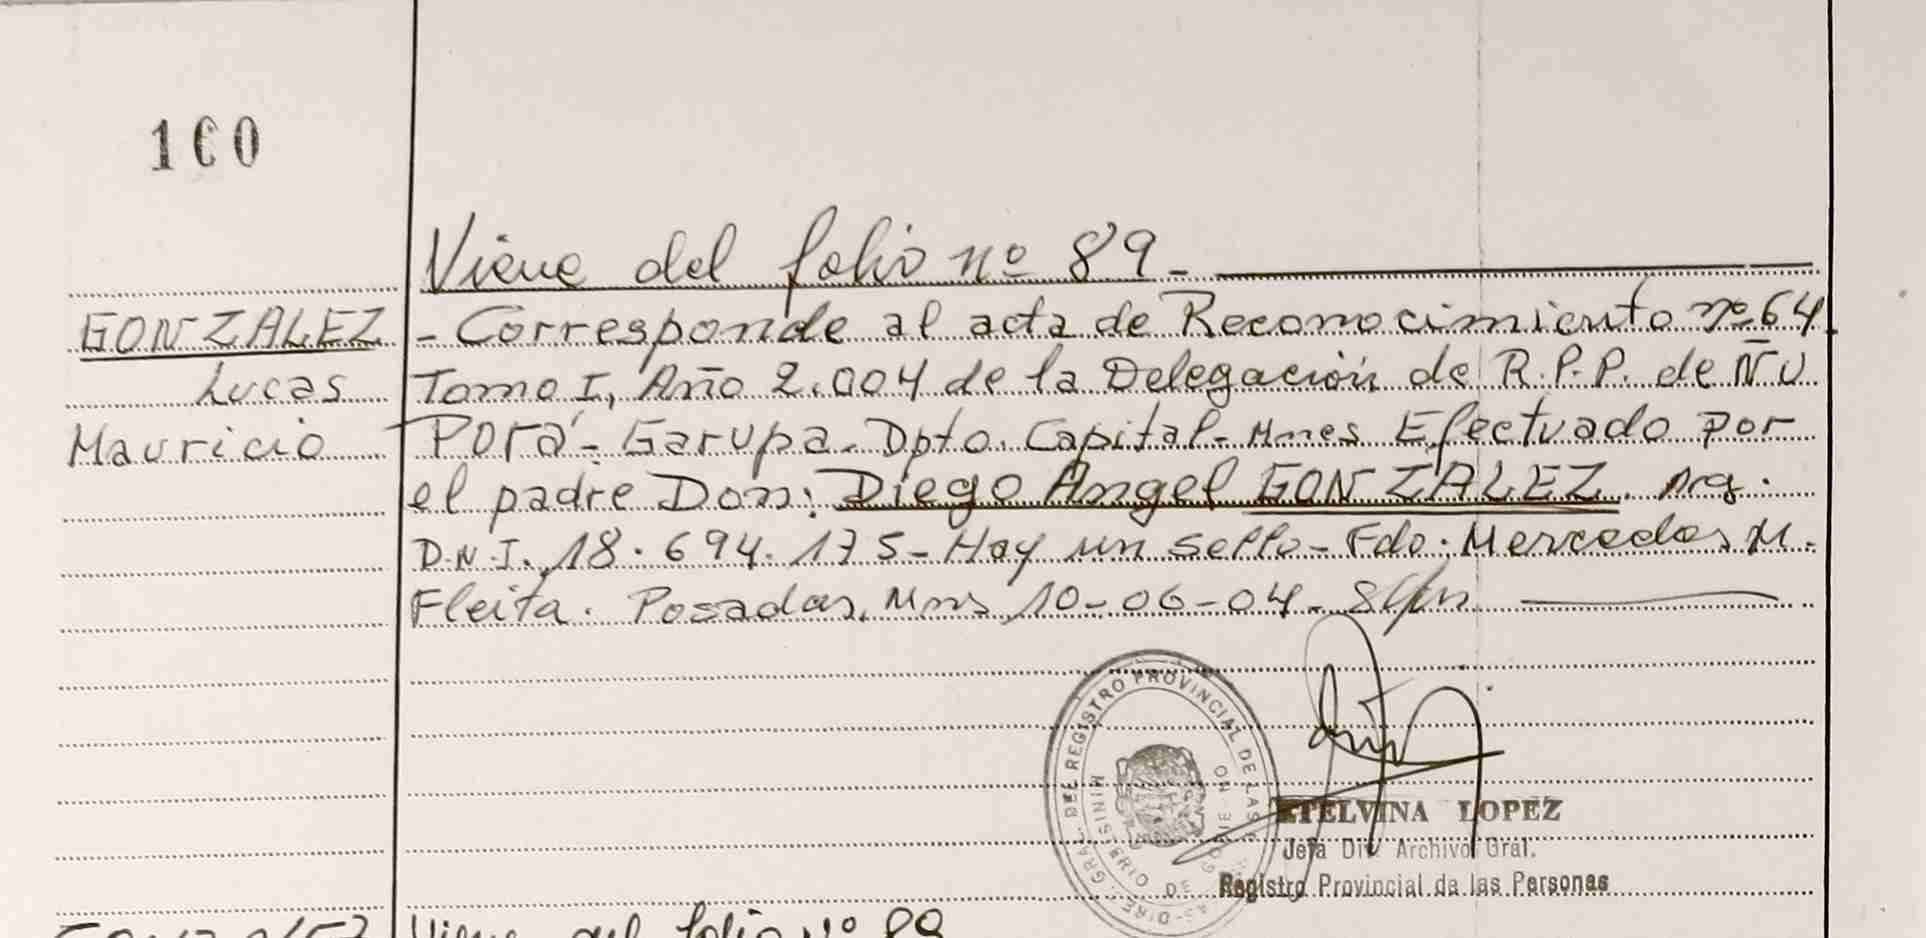 160
Viene del folio nº 89-
GONZALEZ
Lucas
Mauricio
- Corresponde al acta de Reconocimiento nº 64
Tomo I, Año 2.004 de la Delegación de R.P.P. de Ñu
Porá- Garupa- Dpto. Capital- Mnes Efectuado por
el padre Don: Diego Angel GONZALEZ. Arg.
D.N.I. 18.694.175- Hay un sello- Fdo. Mercedes M.
Fleita. Posadas, Mns 10-06-04-
DIREC. GRAL. DEL REGISTRO PROVINCIAL DE LAS
MINISTERIO DE GOBIERNO
ETELVINA LOPEZ
Jefa Div. Archivo Gral.
Registro Provincial de las Personas
Viene del folio nº 89